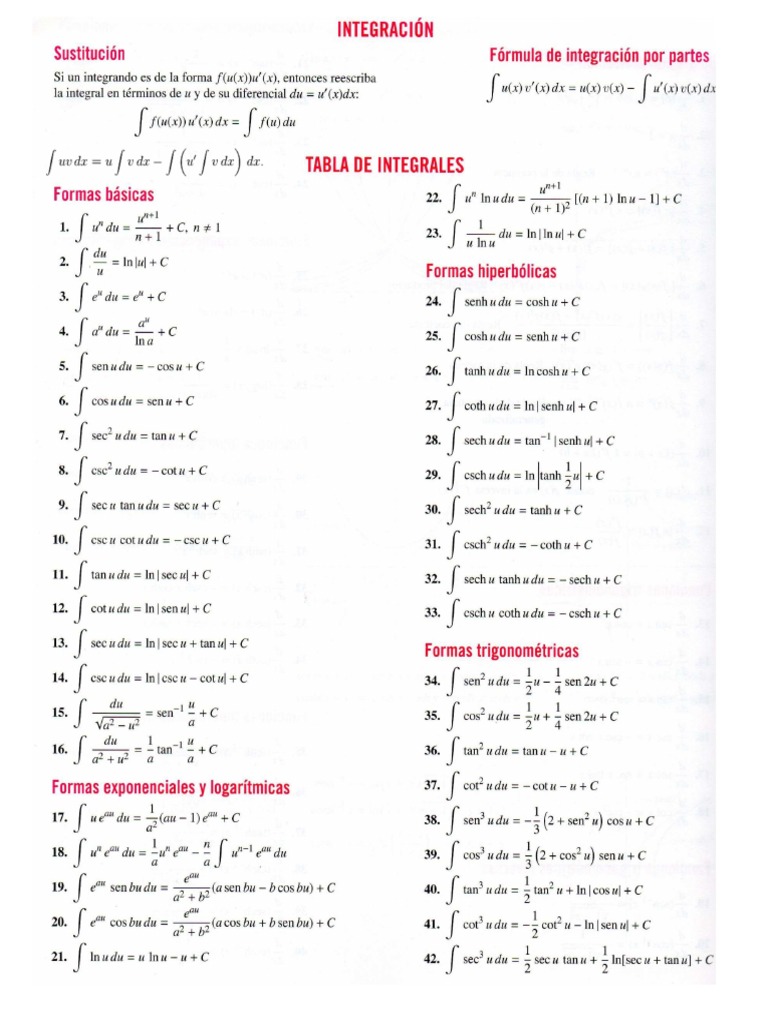 INTEGRACIÓN
Sustitución
Si un integrando es de la forma f(u(x))u′(x), entonces reescriba
la integral en términos de u y de su diferencial du = u′(x)dx:
∫ f(u(x)) u′(x) dx = ∫ f(u) du
Fórmula de integración por partes
∫ u(x) v′(x) dx = u(x) v(x) − ∫ u′(x) v(x) dx
∫ uv dx = u ∫ v dx − ∫ (u′ ∫ v dx) dx.
TABLA DE INTEGRALES
Formas básicas
1. ∫ uⁿ du = uⁿ⁺¹/(n + 1) + C, n ≠ 1
2. ∫ du/u = ln |u| + C
3. ∫ eᵘ du = eᵘ + C
4. ∫ aᵘ du = aᵘ/ln a + C
5. ∫ sen u du = − cos u + C
6. ∫ cos u du = sen u + C
7. ∫ sec² u du = tan u + C
8. ∫ csc² u du = − cot u + C
9. ∫ sec u tan u du = sec u + C
10. ∫ csc u cot u du = − csc u + C
11. ∫ tan u du = ln | sec u| + C
12. ∫ cot u du = ln | sen u| + C
13. ∫ sec u du = ln | sec u + tan u| + C
14. ∫ csc u du = ln | csc u − cot u| + C
15. ∫ du/√(a² − u²) = sen⁻¹ u/a + C
16. ∫ du/(a² + u²) = 1/a tan⁻¹ u/a + C
Formas exponenciales y logarítmicas
17. ∫ u eᵃᵘ du = 1/a² (au − 1) eᵃᵘ + C
18. ∫ uⁿ eᵃᵘ du = 1/a uⁿ eᵃᵘ − n/a ∫ uⁿ⁻¹ eᵃᵘ du
19. ∫ eᵃᵘ sen bu du = eᵃᵘ/(a² + b²) (a sen bu − b cos bu) + C
20. ∫ eᵃᵘ cos bu du = eᵃᵘ/(a² + b²) (a cos bu + b sen bu) + C
21. ∫ ln u du = u ln u − u + C
22. ∫ uⁿ ln u du = uⁿ⁺¹/(n + 1)² [(n + 1) ln u − 1] + C
23. ∫ 1/(u ln u) du = ln | ln u| + C
Formas hiperbólicas
24. ∫ senh u du = cosh u + C
25. ∫ cosh u du = senh u + C
26. ∫ tanh u du = ln cosh u + C
27. ∫ coth u du = ln | senh u| + C
28. ∫ sech u du = tan⁻¹ |senh u| + C
29. ∫ csch u du = ln |tanh 1/2 u| + C
30. ∫ sech² u du = tanh u + C
31. ∫ csch² u du = − coth u + C
32. ∫ sech u tanh u du = − sech u + C
33. ∫ csch u coth u du = − csch u + C
Formas trigonométricas
34. ∫ sen² u du = 1/2 u − 1/4 sen 2u + C
35. ∫ cos² u du = 1/2 u + 1/4 sen 2u + C
36. ∫ tan² u du = tan u − u + C
37. ∫ cot² u du = − cot u − u + C
38. ∫ sen³ u du = − 1/3 (2 + sen² u) cos u + C
39. ∫ cos³ u du = 1/3 (2 + cos² u) sen u + C
40. ∫ tan³ u du = 1/2 tan² u + ln | cos u| + C
41. ∫ cot³ u du = − 1/2 cot² u − ln | sen u| + C
42. ∫ sec³ u du = 1/2 sec u tan u + 1/2 ln[sec u + tan u] + C